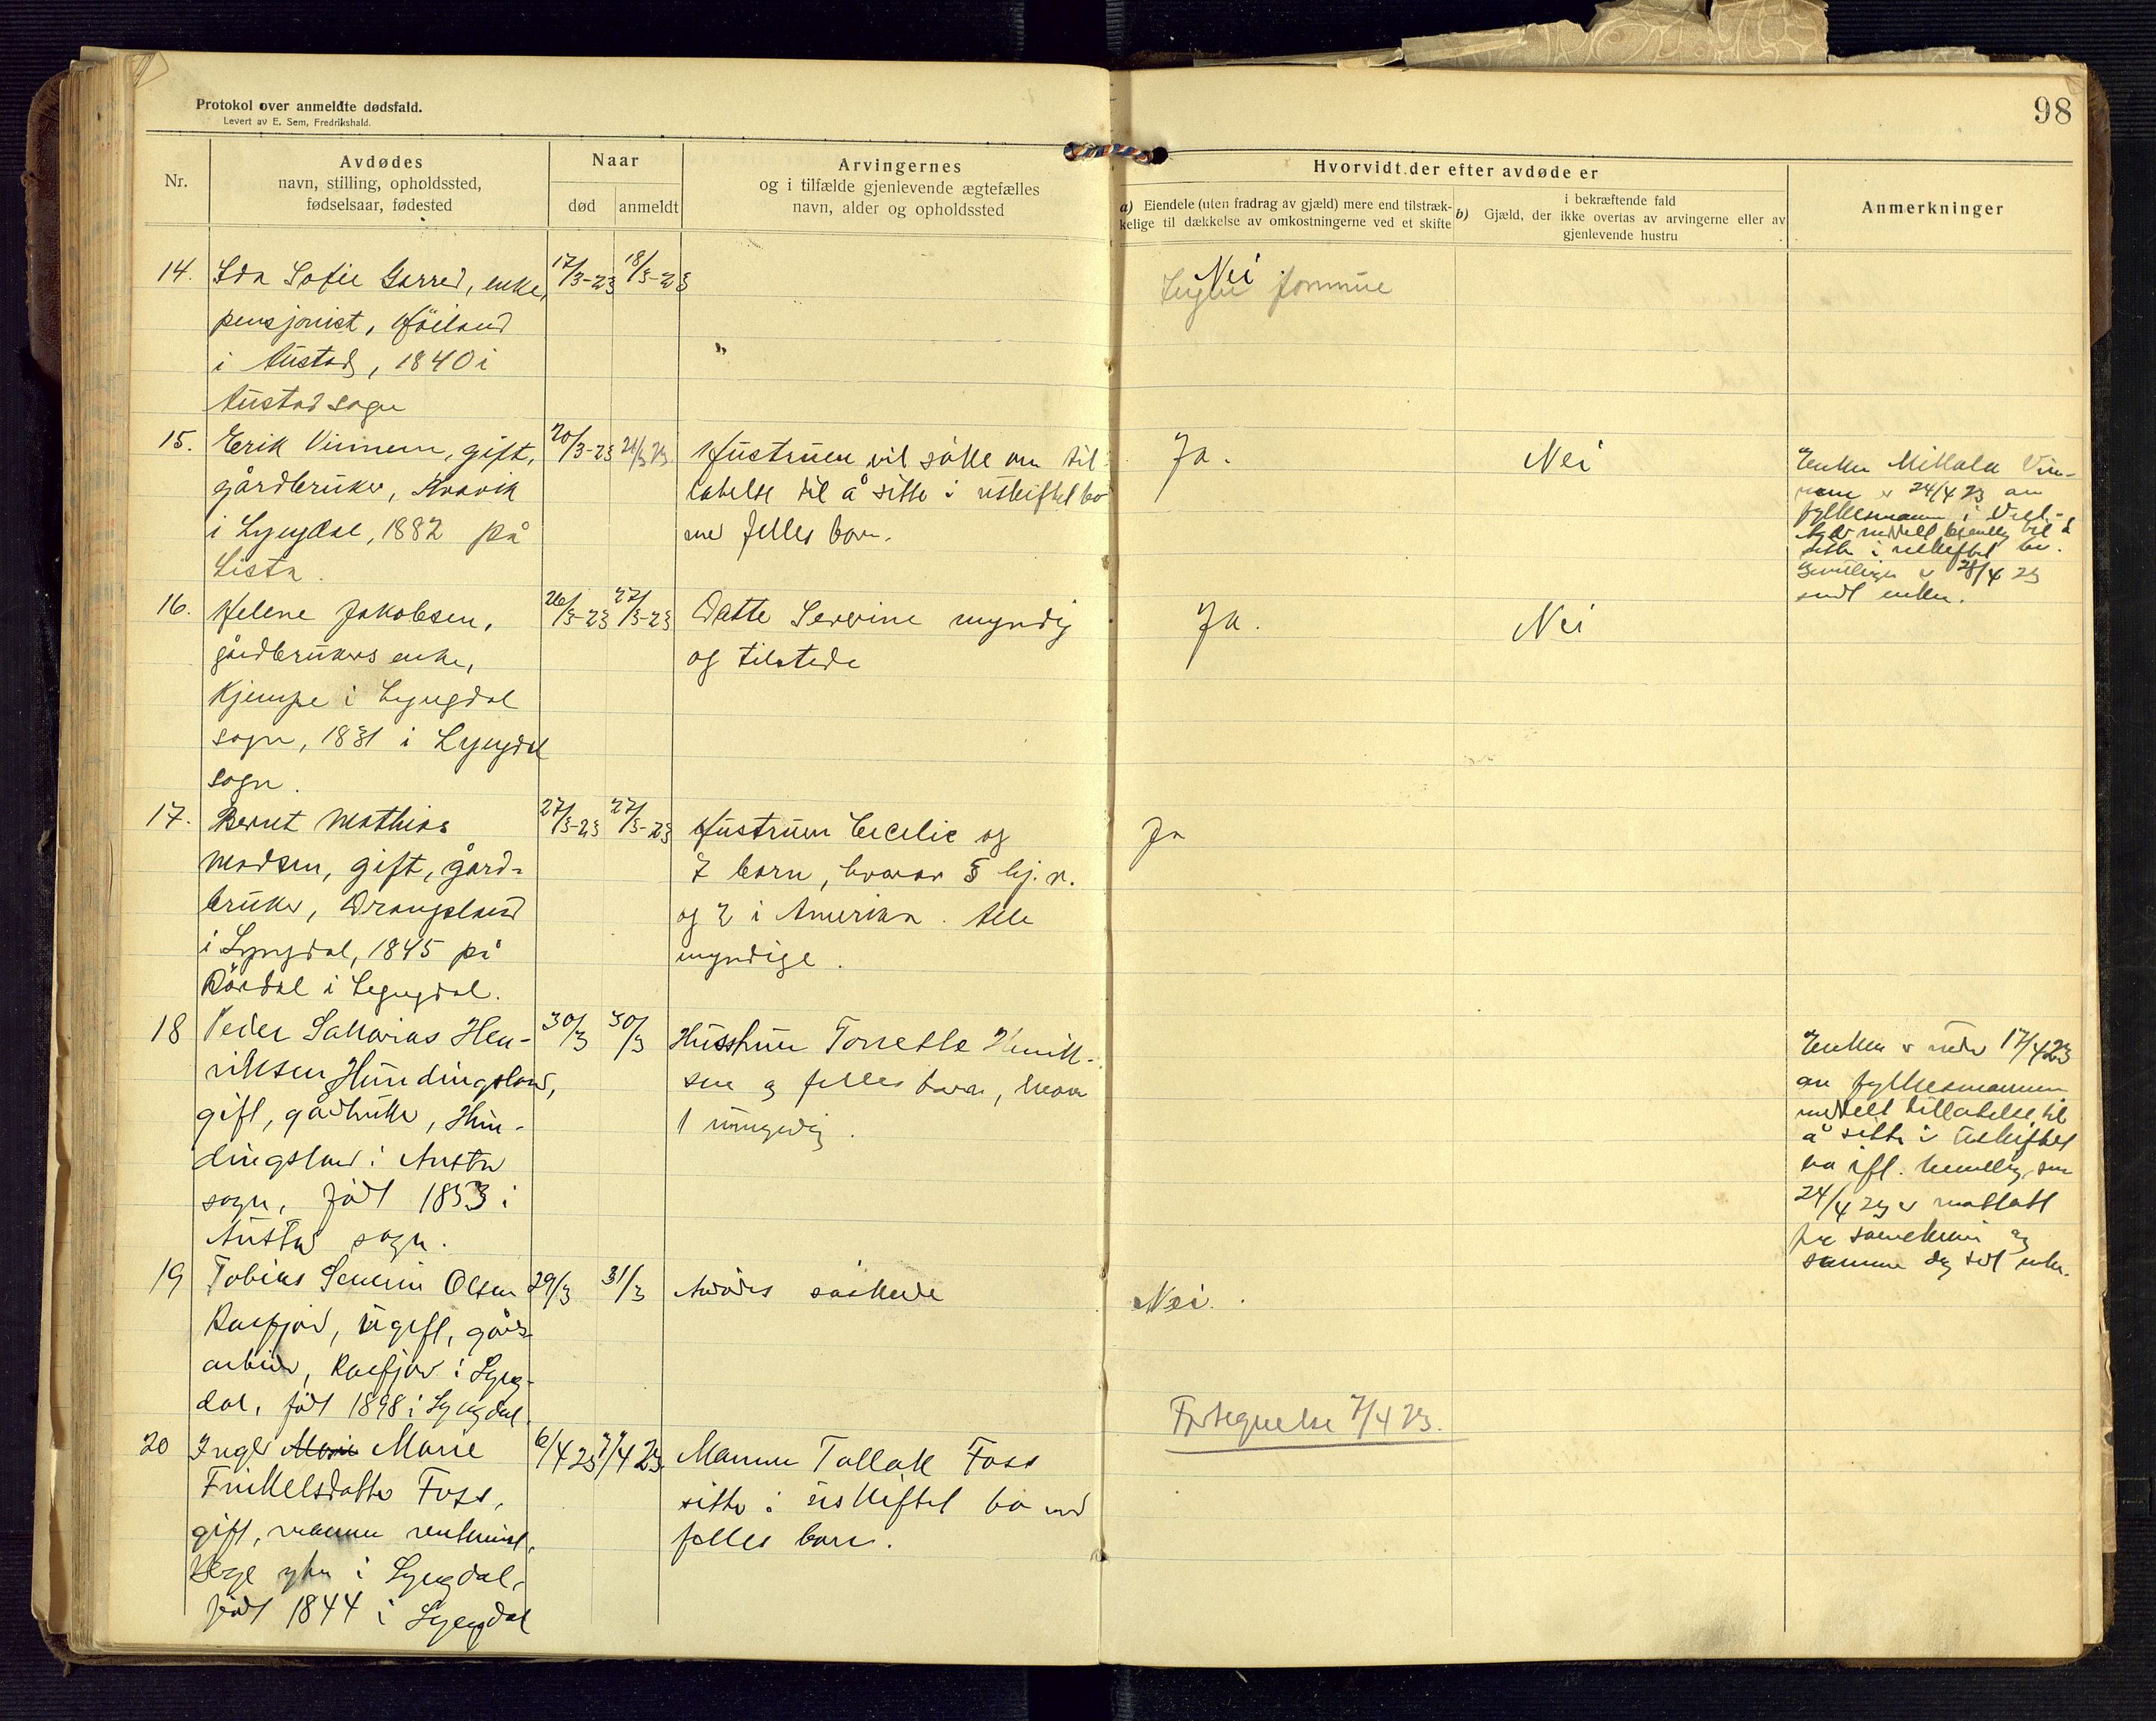 98
Protokol over anmeldte dødsfald.
Levert av E. Sem, Fredrikshald.
Nr.
Avdødes
navn, stilling, opholdssted,
fødselsaar, fødested
Naar
død
anmeldt
Arvingernes
og i tilfælde gjenlevende ægtefælles
navn, alder og opholdssted
Hvorvidt der efter avdøde er
a) Eiendele (uten fradrag av gjæld) mere end tilstræk-
kelige til dækkelse av omkostningerne ved et skifte
i bekræftende fald
b) Gjæld, der ikke overtas av arvingerne eller av
gjenlevende hustru
Anmerkninger
14. Ida Sofie Garred, enke,
pensjonist,
i Austad, 1840 i
Austad sogn
17/3-23
18/3-23
Nei
15. Erik Vinnem, gift,
gårdbruker, Kvavik
i Lyngdal, 1882 på
Lista.
20/3-23
21/3 23.
Hustruen vil søke om til-
latelse til å sitte i uskiftet bo
med felles barn.
Ja.
Nei
Enken Mikala Vin-
nem er 24/4 23 av
fylkesmannen i Vest-
Agder meddelt bevilling til å
sitte i uskiftet bo.
28/4 23
sendt enken.
16. Helene Jakobsen,
gårdbrukers enke,
Kjempe i Lyngdal
sogn, 1831 i Lyngdal
sogn.
26/3-23
27/3-23
Datte Severine myndig
og tilstede
Ja.
Nei
17. Bernt Mathias
Madsen, gift, gård-
bruker, Drangsland
i Lyngdal, 1845 på
Rördal i Lyngdal.
27/3-23
27/3-23
Hustruen Cecilie og
7 barn, hvorav 5 hj. v.
og 2 i Amerika. Alle
myndige.
Ja
18 Peder Sakarias Hen-
riksen Hundingsland,
gift, gårdbruker, Hun-
dingsland i Austad
sogn, født 1853 i
Austad sogn.
30/3
30/3
Husstruen Tonette Henrik-
sen og felles barn, hvorav
1 umyndig.
Enken er under 17/4 23
av fylkesmannen
meddelt tillatelse til
å sitte i uskiftet
bo ifl. bevilling som
24/4 23 er mottatt
fra og
samme dag sendt enken.
19 Tobias Severin Olsen
Rosfjord, ugift, gårds-
arbeider, Rosfjord i Lyng-
dal, født 1898 i Lyngdal.
29/3
31/3
Avdødes søskende
Nei.
20 Inger Marie Marie
Trukelsdatter Foss,
gift, mannen
i Lyngdal,
født 1844 i Lyngdal
6/4 23
7/4 23
Mannen Tallak Foss
sitter i uskiftet bo med
felles barn.
Fortegnelse 7/4 23.